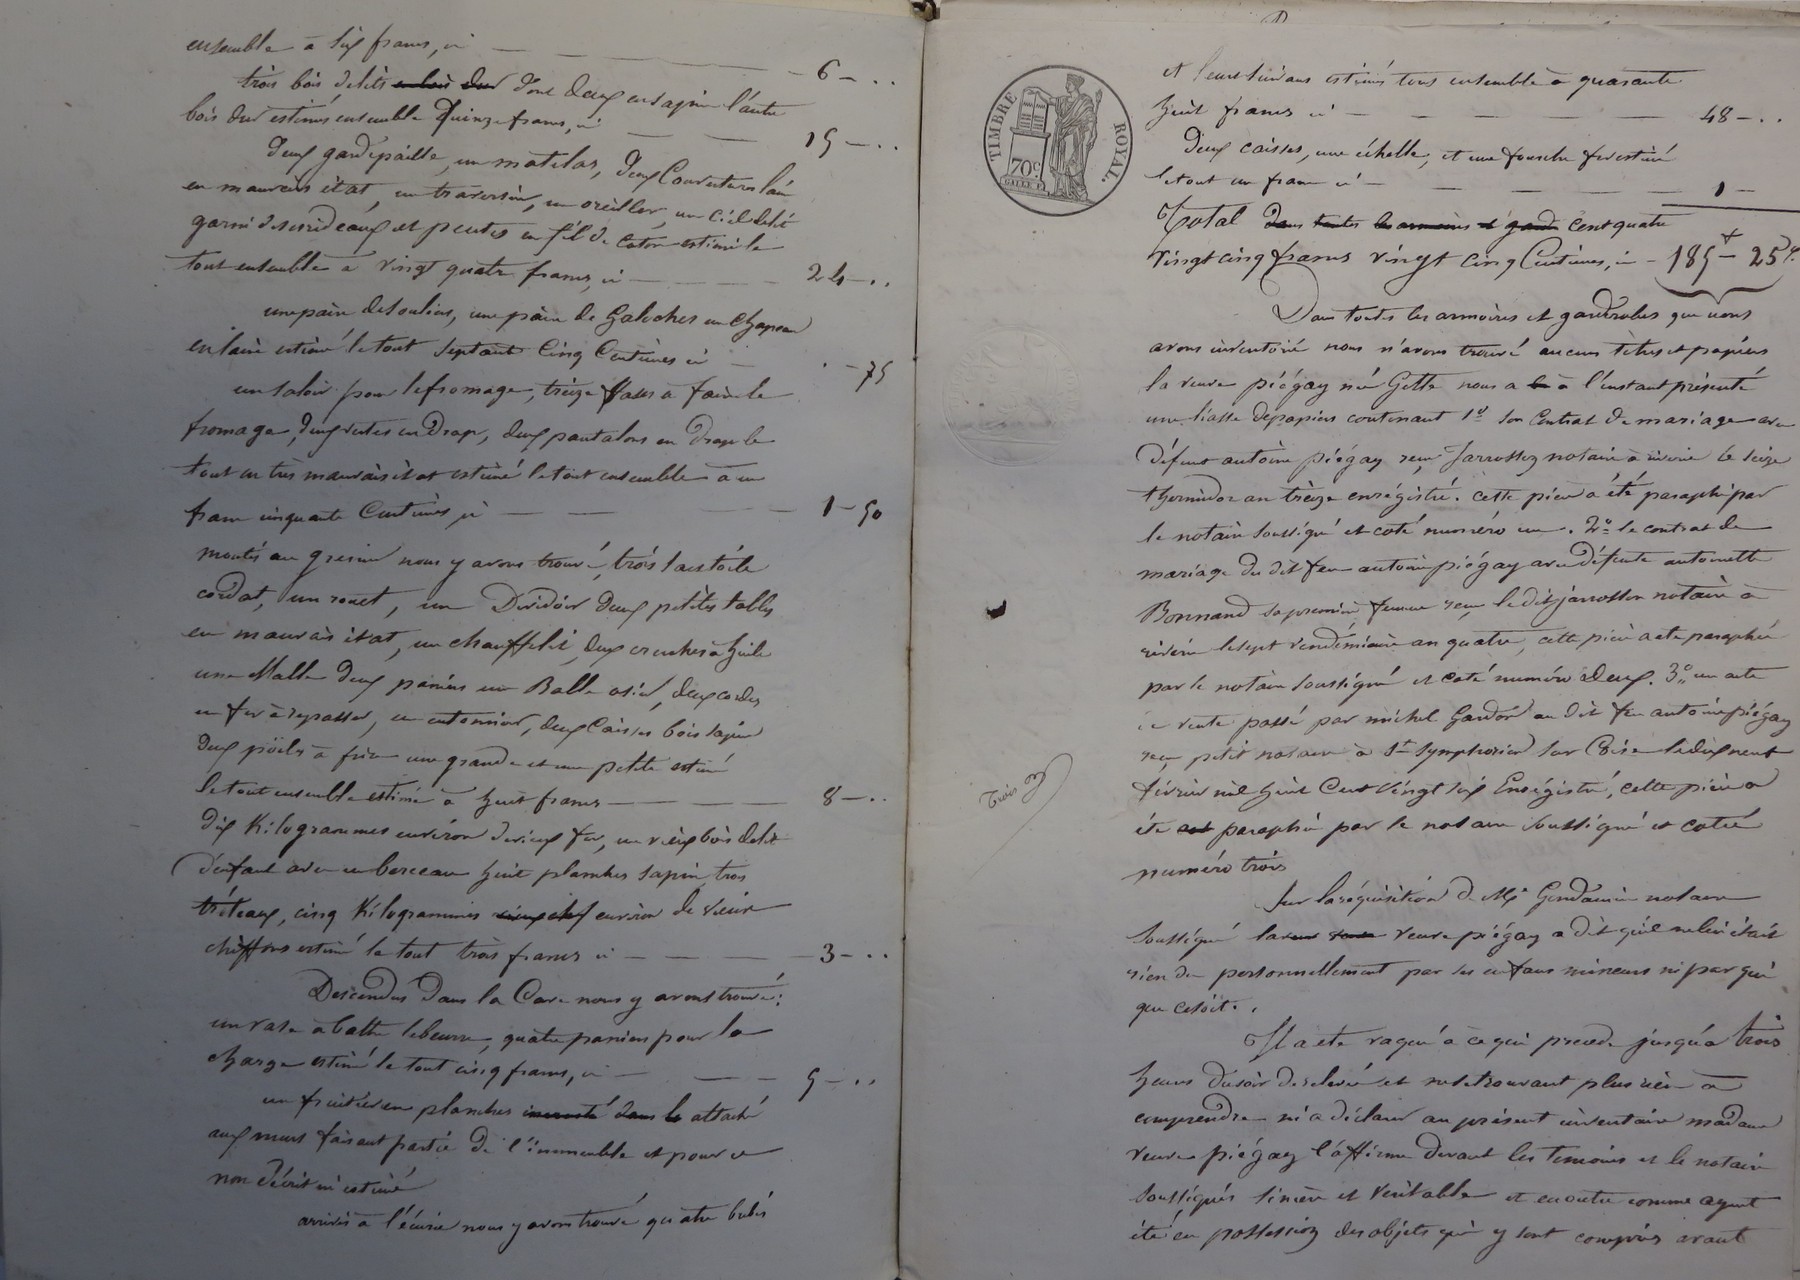 ensemble à six francs, ci — 6 — . .
trois bois de lits dont deux en sapin l'autre
bois dur estimés ensemble quinze francs, ci — 15 — . .
Deux gardepaille, un matelas, deux Couvertures laine
en mauvais état, un traversin, un oreiller, un ciel de lit
garni de ses rideaux et pentes en fil de coton estimé le
tout ensemble à vingt quatre francs, ci — 24 — . .
une paire de souliers, une paire de Galoches un chapeau
en laine estimé le tout septante cinq Centimes ci — . — 75
un saloir pour le fromage, treize à faire le
fromage, deux vestes en Drap, deux pantalons en Drap le
tout en très mauvais état estimé le tout ensemble à un
franc cinquante Centimes ci — 1 — 50
montés au grenier nous y avons trouvé, trois sacs toile
cordat, un rouet, un Dévidoir deux petites tables
en mauvais état, un chauffelit, deux cruches à huile
une Malle deux paniers un Balle osier, deux cordes
un fer à repasser, un entonnoir, deux Caisses bois sapin
Deux poëles à frire une grande et une petite estimé
le tout ensemble estimé à huit francs — 8 — . .
Dix Kilogrammes environ de vieux fer, un vieux bois de lit
d'enfant avec un berceau huit planches sapin, trois
tréteaux, cinq Kilogrammes environ de vieux
chiffons estimé le tout trois francs ci — 3 — . .
Descendus dans la Cave nous y avons trouvé :
un vase à battre le beurre, quatre paniers pour la
charge estimé le tout cinq francs, ci — 5 — . .
un fruitier en planches incrusté dans le attaché
aux murs faisant partie de l'immeuble et pour ce
non décrit ni estimé
arrivés à l'écurie nous y avons trouvé quatre brebis
TIMBRE ROYAL.
70c.
et leurs suivans estimés tous ensemble à quarante
huit francs ci — 48 — . .
Deux caisses, une échelle, et une fourche fer estimé
le tout un franc ci — 1 —
Total dans toutes les armoires et gard Cent quatre
vingt cinq francs vingt cinq Centimes, ci — 185 — 25 c.
Dans toutes les armoires et garderobes que nous
avons inventorié nous n'avons trouvé aucuns titres et papiers
la veuve piégay née Gette nous a à l'instant présenté
une liasse de papiers contenant 1º son Contrat de mariage avec
Défunt antoine piégay reçu Jarrosson notaire à riverie le seize
thermidor an treize enrégistré. cette pièce a été paraphé par
le notaire soussigné et coté numéro un. 2º le contrat de
mariage du dit feu antoine piégay avec Défunte antoinette
Bonnand sa première femme reçu le dit jarrosson notaire à
riverie le sept vendémiaire an quatre, cette pièce a été paraphée
par le notaire soussigné et coté numéro deux. 3º un acte
de vente passé par michel Gardon au dit feu antoine piégay
reçu petit notaire à St Symphorien sur Coise le dix neuf
février mil huit Cent vingt six Enrégistré, cette pièce a
été paraphé par le notaire soussigné et cotée
numéro trois
Trois
Sur la réquisition de Me notaire
soussigné la veuve piégay a dit qu'il ne lui était
rien du personnellement par ses enfans mineurs ni par qui
que ce soit. .
Il a été vaqué à ce qui précède jusqu'à trois
heures du soir de relevé et ne se trouvant plus rien à
comprendre ni a déclarer au présent inventaire madame
veuve piégay l'affirme devant les témoins et le notaire
soussignés sincère et véritable et en outre comme ayant
été en possession des objets qui y sont compris avant